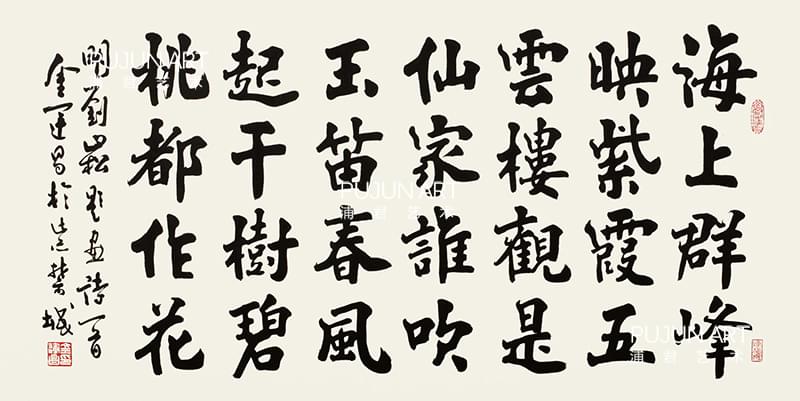 海上群峰
映紫霞五
雲樓觀是
仙家誰吹
玉笛春風
起千樹碧
桃都作花
明劉崧題畫詩一首
金運昌於紫禁城
PUJUN ART
浦君艺术
PUJUN ART
浦君艺术
PUJUN ART
浦君艺术